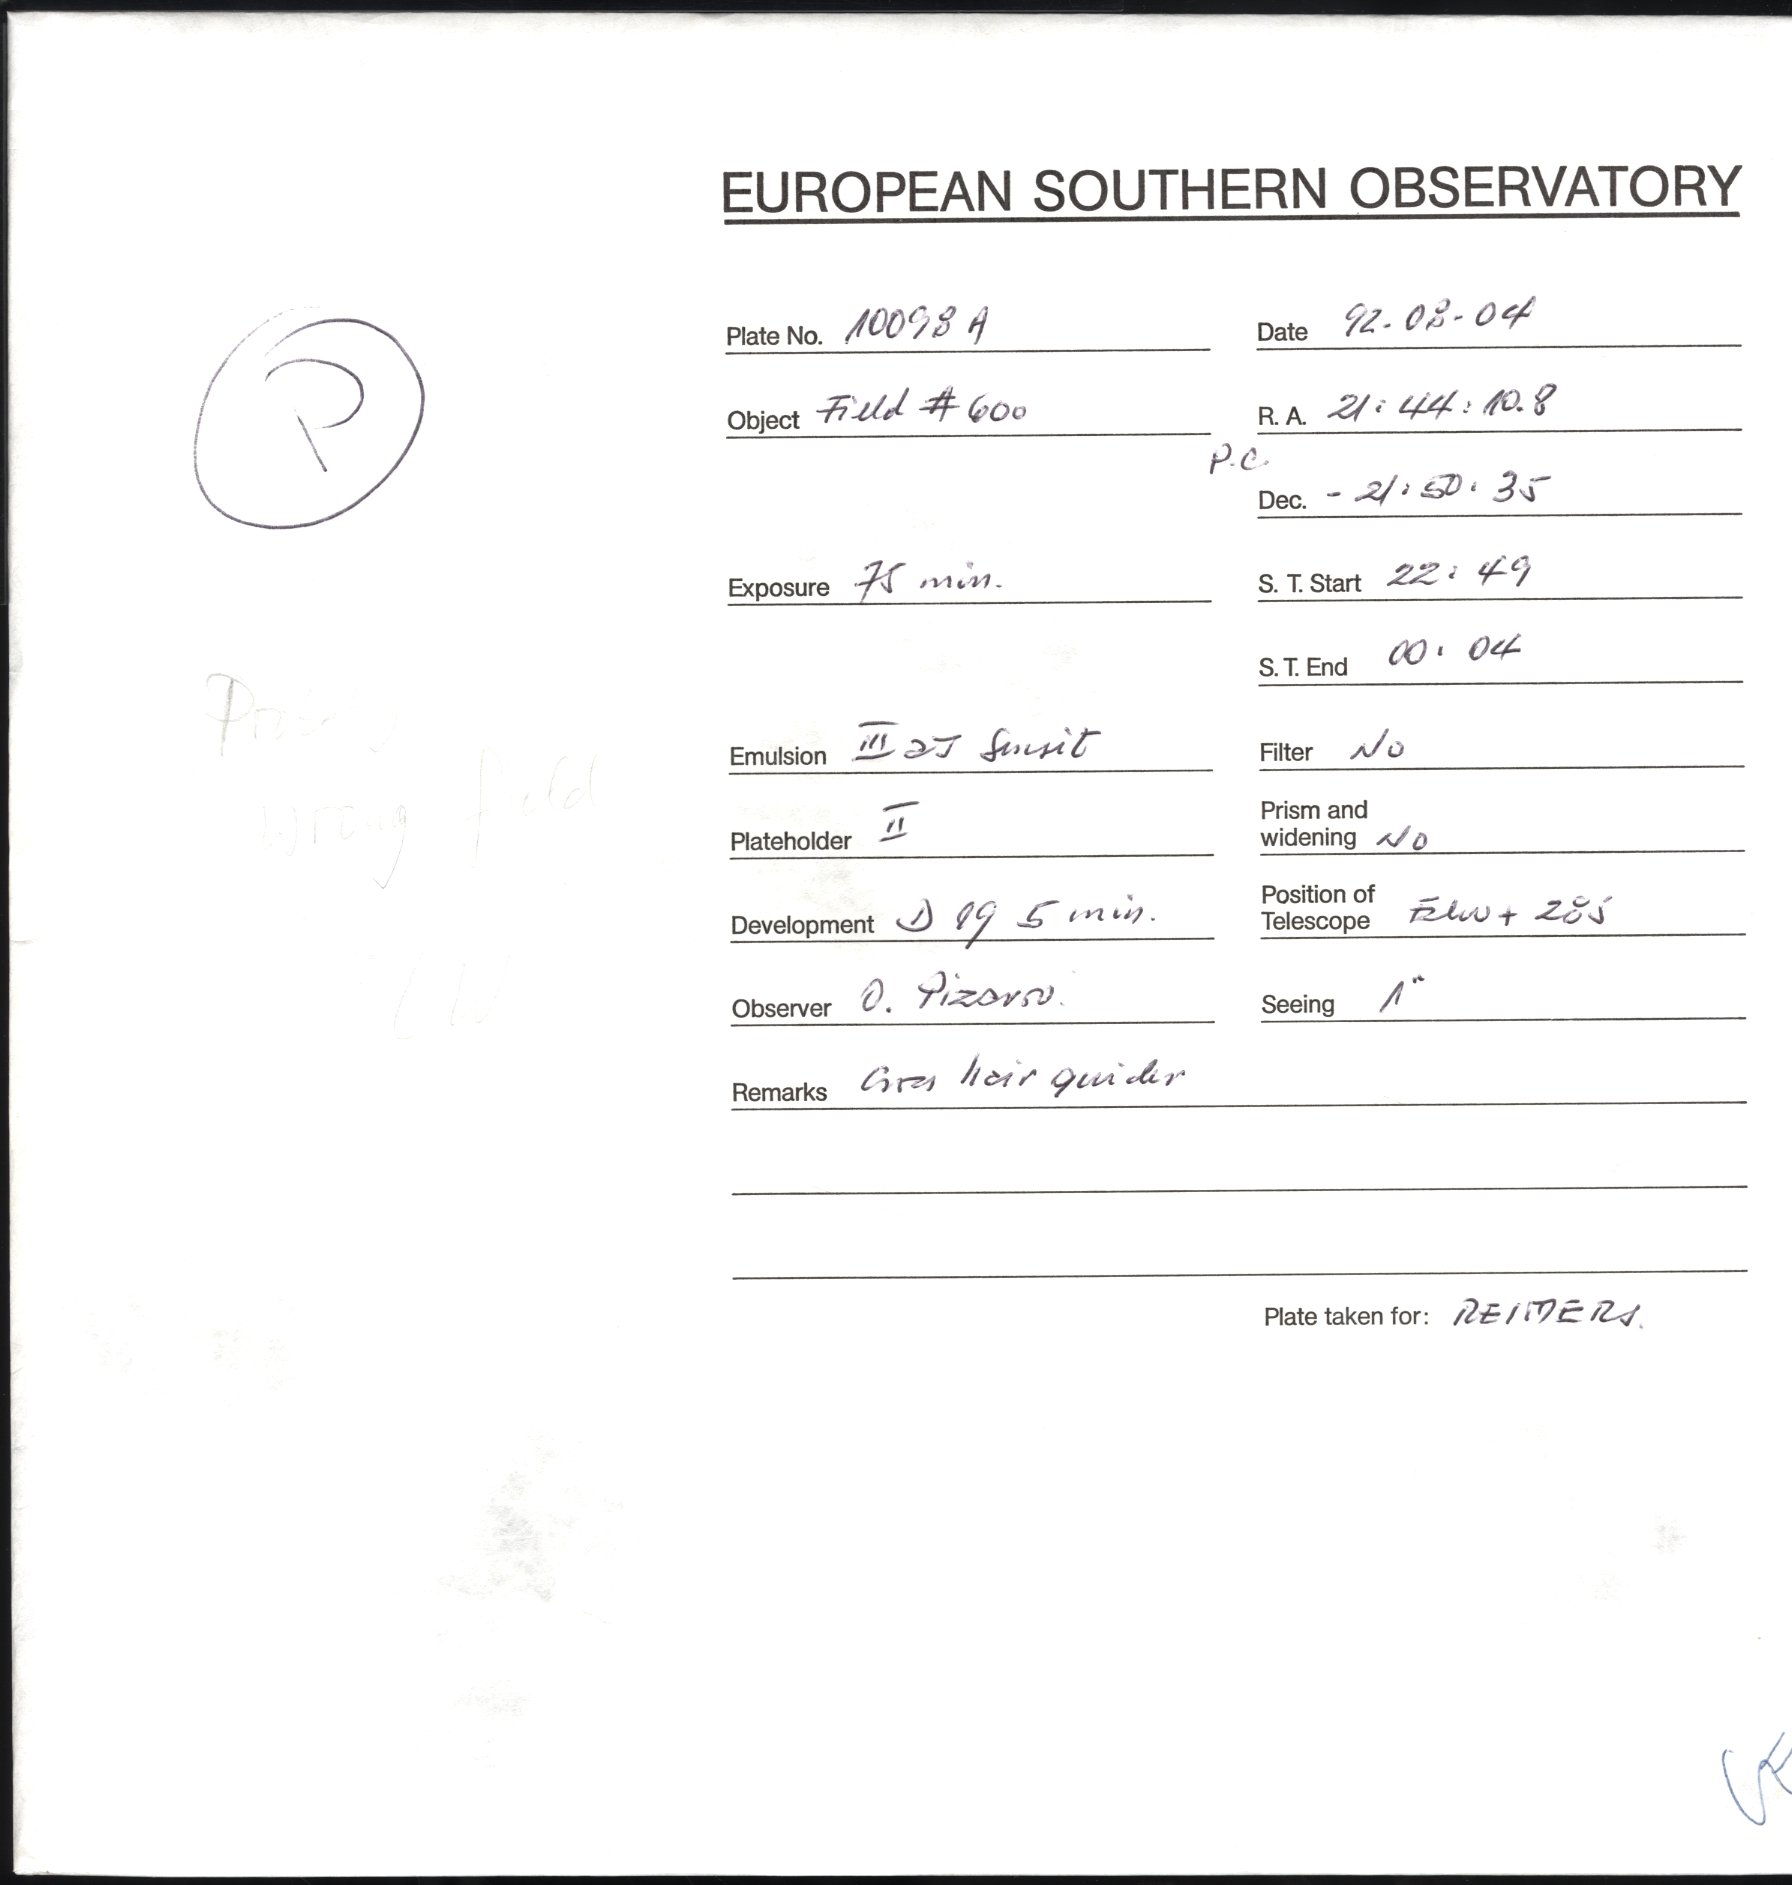 EUROPEAN SOUTHERN OBSERVATORY
P
Plate No. 10098 A
Date 92-08-04
Object Field # 600
R. A. 21:44:10.8
P.C.
Dec. - 21:50:35
Exposure 75 min.
S. T. Start 22:49
S. T. End 00:04
wrong field
Emulsion III aJ Sensit
Filter No
Plateholder II
Prism and
widening No
Development D 19 5 min.
Position of
Telescope 285
Observer O. Pizarro.
Seeing 1"
Remarks Cross hair guider
Plate taken for: REIMERS.